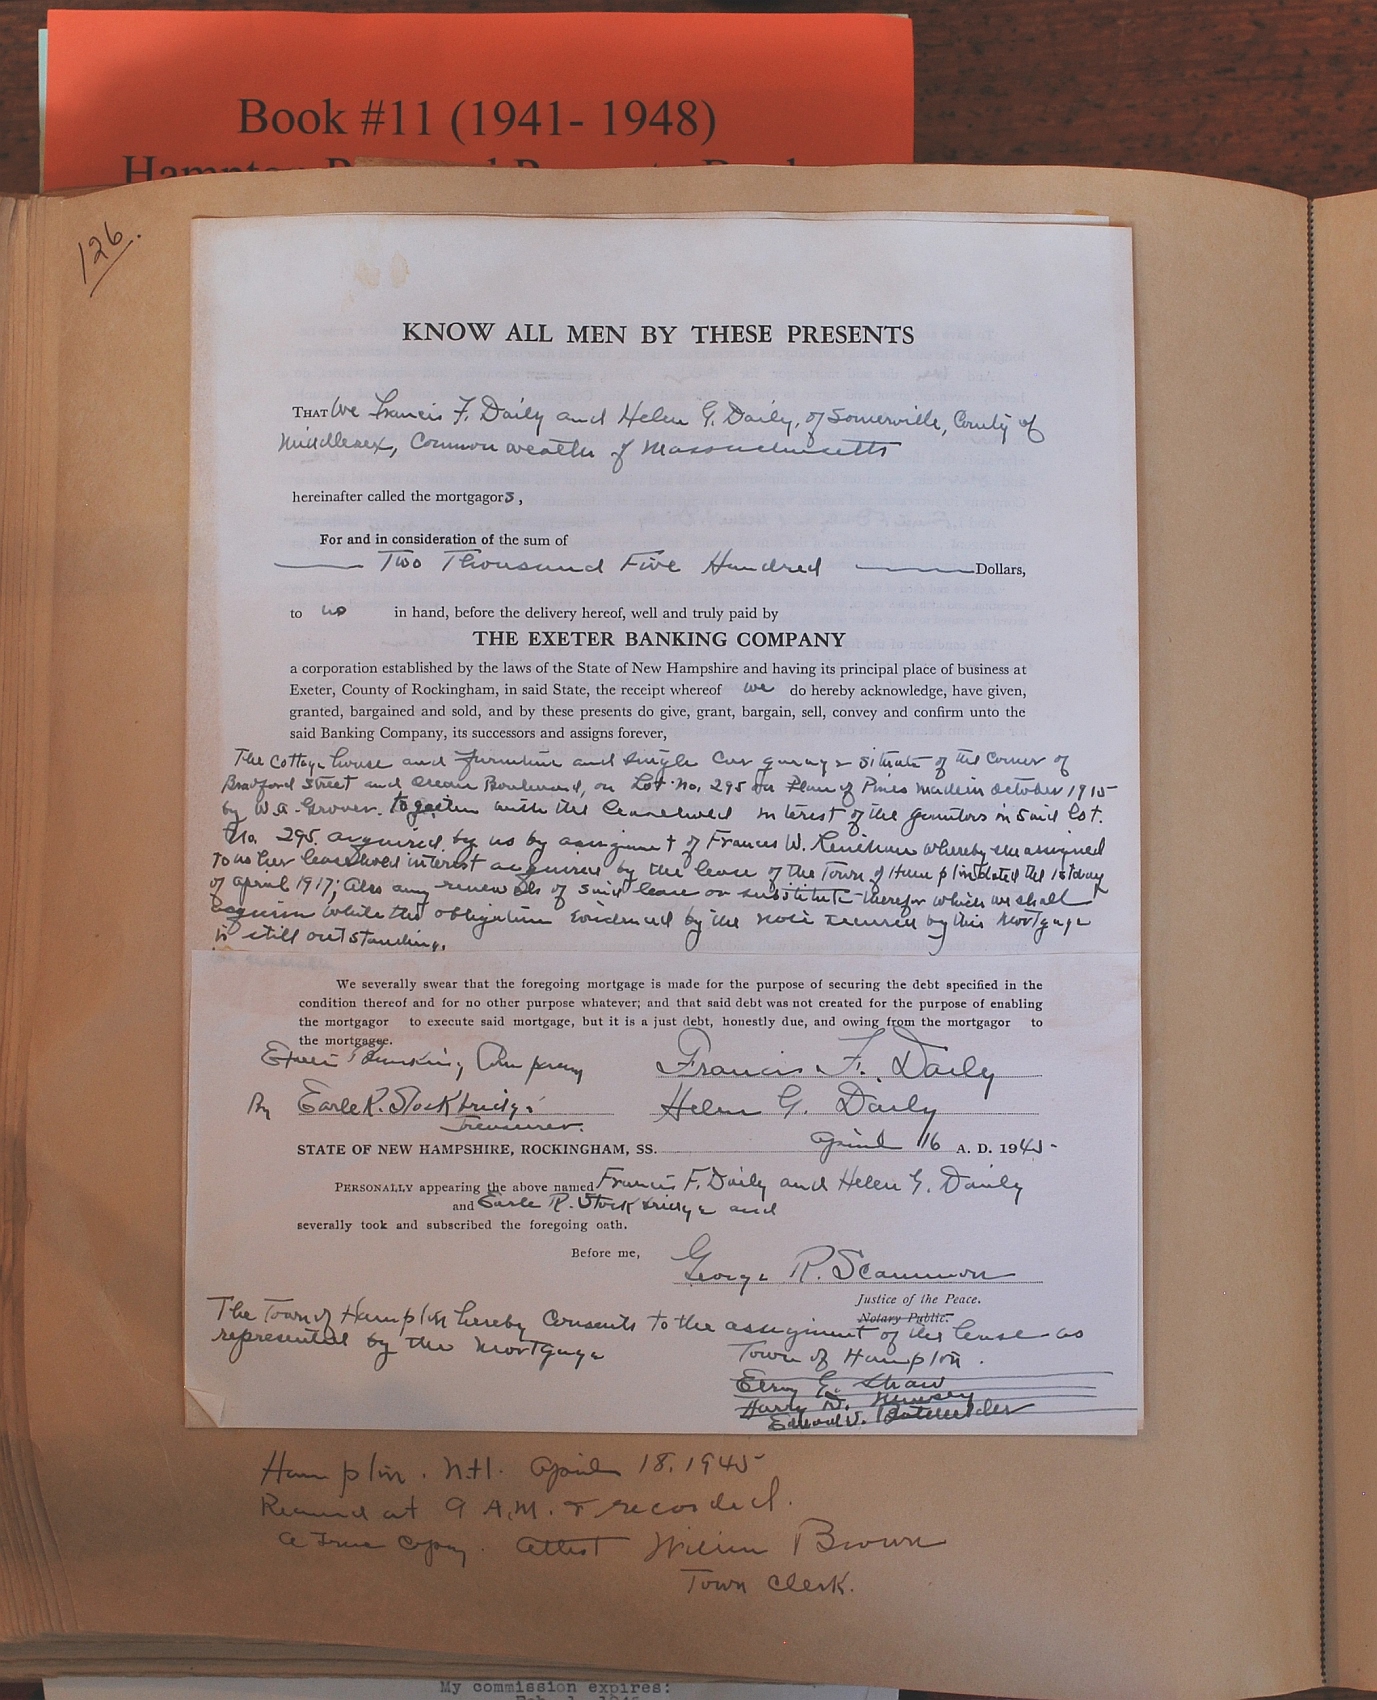 Book #11 (1941- 1948)
126.
KNOW ALL MEN BY THESE PRESENTS
THAT We Francis F. Daily and Helen G. Daily, of Somerville, County of
Middlesex, Commonwealth of Massachusetts
hereinafter called the mortgagors,
For and in consideration of the sum of
Two Thousand Five Hundred Dollars,
to us in hand, before the delivery hereof, well and truly paid by
THE EXETER BANKING COMPANY
a corporation established by the laws of the State of New Hampshire and having its principal place of business at
Exeter, County of Rockingham, in said State, the receipt whereof we do hereby acknowledge, have given,
granted, bargained and sold, and by these presents do give, grant, bargain, sell, convey and confirm unto the
said Banking Company, its successors and assigns forever,
The Cottage house and furniture and single car garage situate of the corner of
Bradford Street and Ocean Boulevard, on Lot No. 295 on Plan of Pines made in October 1915
by W.A. Grover. together with the leasehold interest of the grantors in said lot.
No. 295. acquired by us by assignment of Frances W. whereby she assigned
to us her leasehold interest acquired by the lease of the Town of Hampton dated the 1st day
of April 1917; Also any renewals of said lease or substitute therefor which we shall
acquire while the obligation evidenced by the note secured by this mortgage
is still outstanding.
We severally swear that the foregoing mortgage is made for the purpose of securing the debt specified in the
condition thereof and for no other purpose whatever; and that said debt was not created for the purpose of enabling
the mortgagor to execute said mortgage, but it is a just debt, honestly due, and owing from the mortgagor to
the mortgagee.
Exeter Banking Company Francis F. Daily
By Earle R. Stockbridge Helen G. Daily
Treasurer.
STATE OF NEW HAMPSHIRE, ROCKINGHAM, SS. April 16 A. D. 1945
PERSONALLY appearing the above named Francis F. Daily and Helen G. Daily
and Earle R. Stockbridge and
severally took and subscribed the foregoing oath.
Before me,
George R. Scammon
Justice of the Peace.
Notary Public.
The Town of Hampton hereby consents to the assignment of the lease as
represented by the mortgage
Town of Hampton.
Elroy G. Shaw
Harry D. Munsey
Edward V. Batchelder
Hampton. N.H. April 18, 1945
Received at 9 A.M. & recorded.
A true copy. Attest William Brown
Town Clerk.
My commission expires: